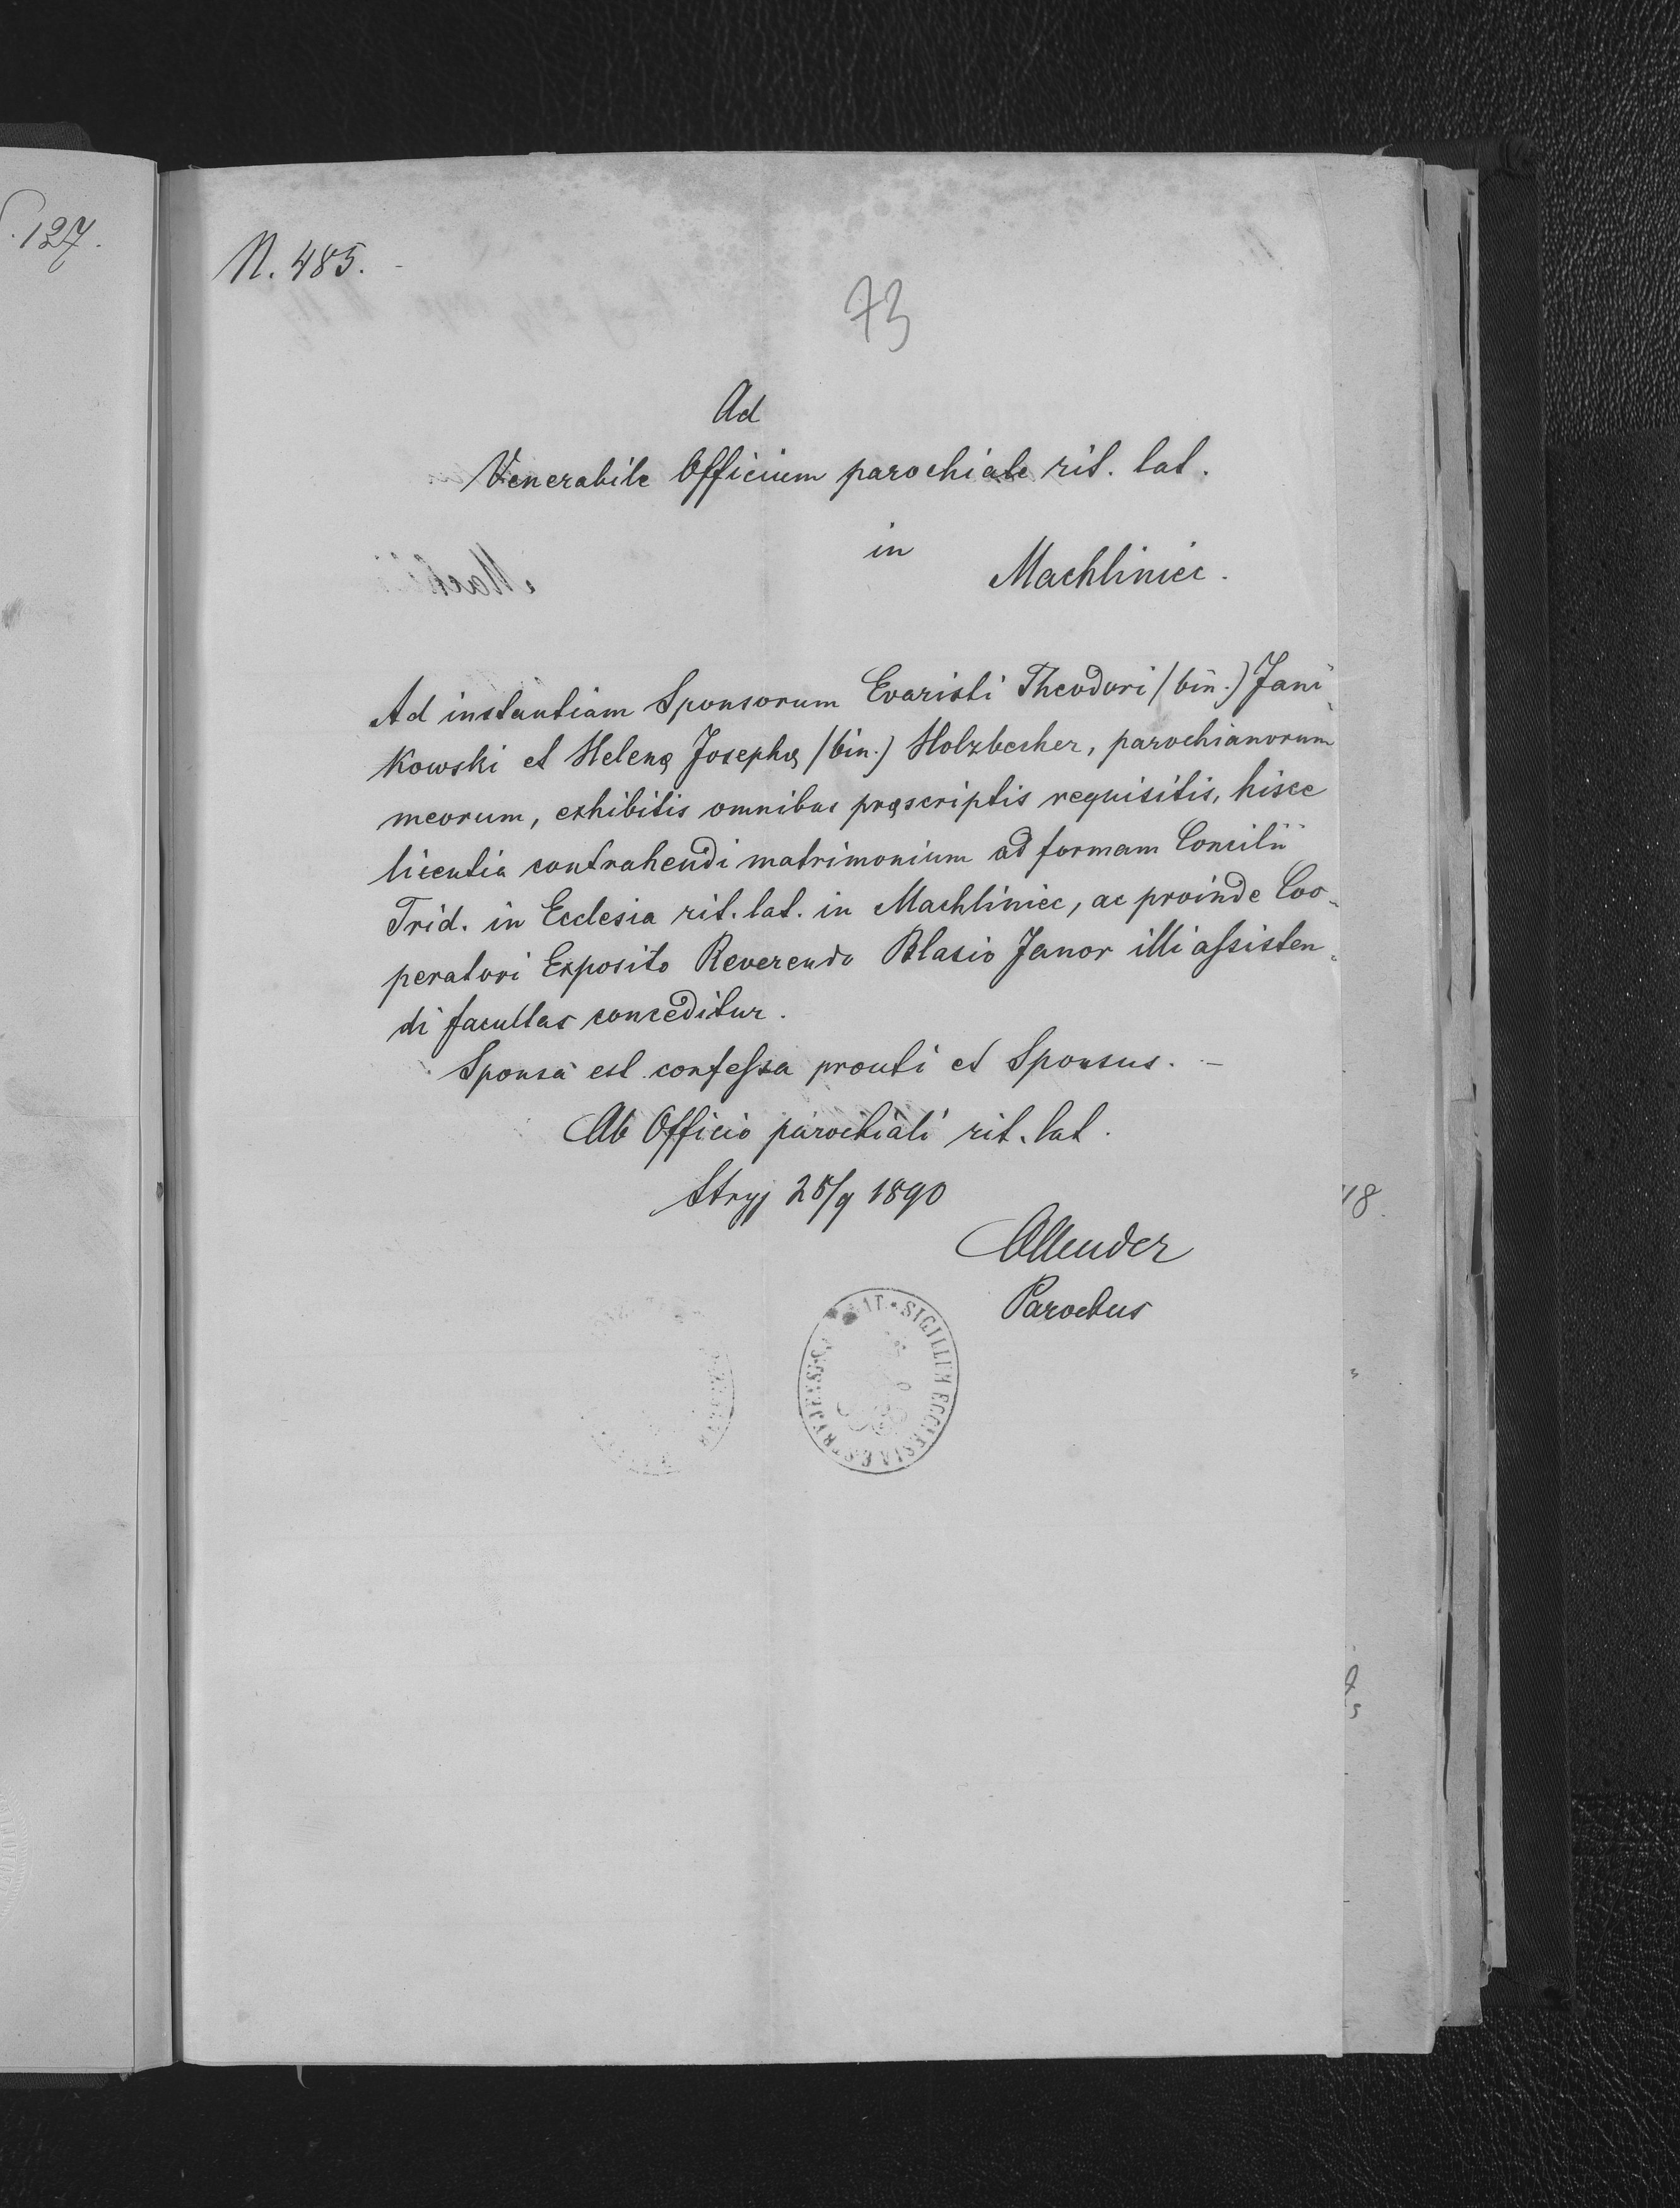 127.
N. 485.
73
Ad
Venerabile Officium parochiale rit. lat.
in
Machliniec.
Ad instantiam Sponsorum Evaristi Theodori /bin./ Jani
kowski et Helenę Josephę /bin./ Holzbecher, parochianorum
meorum, exhibitis omnibus pręscriptis requisitis, hisce
licentia contrahendi matrimonium ad formam Concilii
Trid. in Ecclesia rit. lat. in Machliniec, ac proinde Coo-
peratori Exposito Reverendo Blasio Janor illi aſsisten-
di facultas conceditur.
Sponsa est confeſsa prouti et Sponsus. -
Ab Officio parochiali rit. lat.
Stryj 25/9 1890
Ollender
Parochus
SIGILLUM ECCLESIAE STRYJENSIS